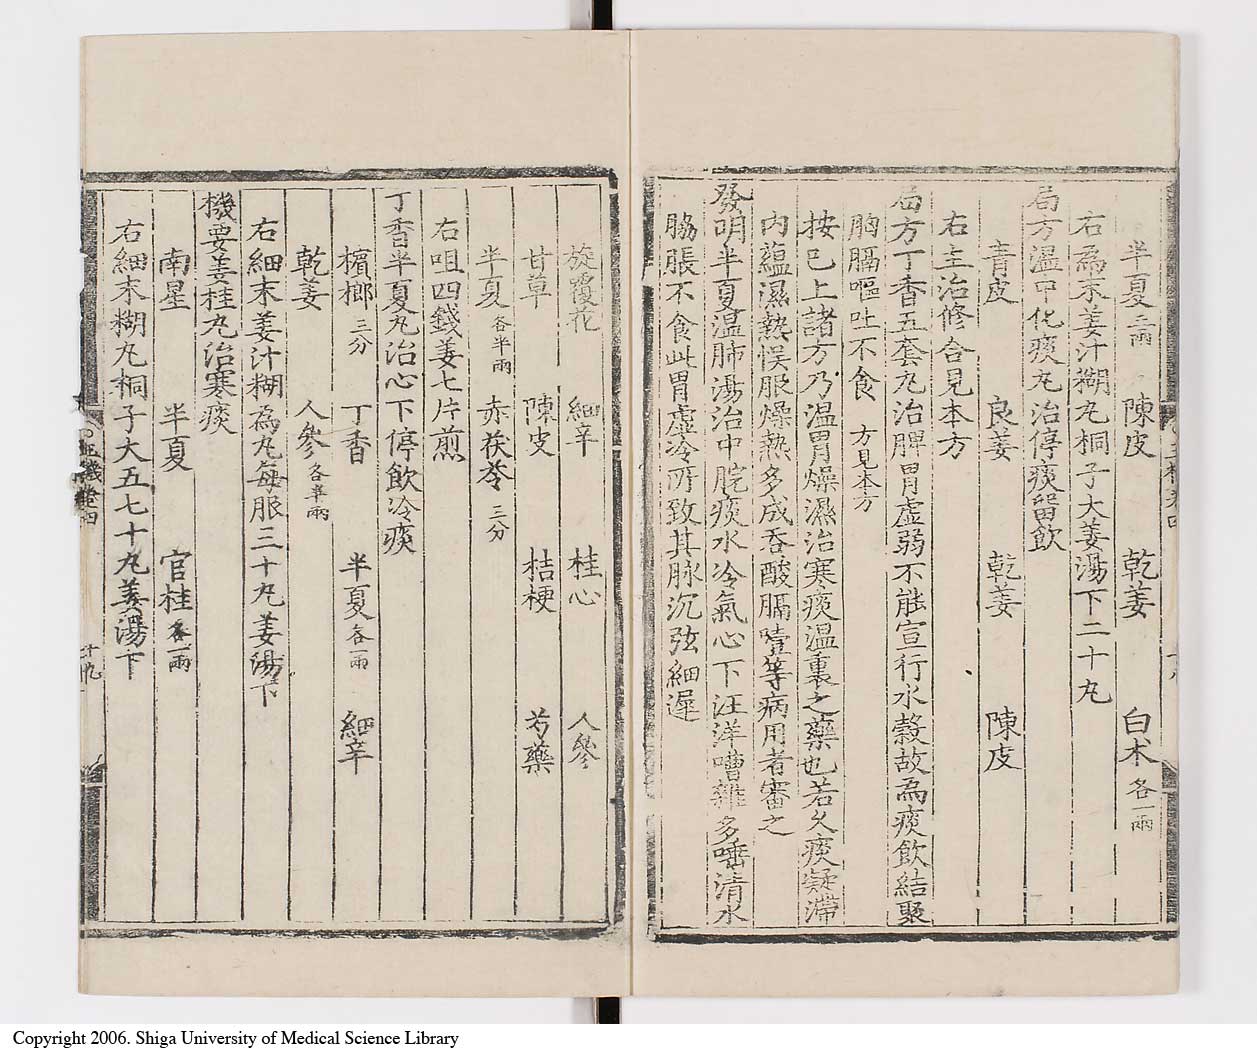 半夏二兩 陳皮 乾姜 白朮各一兩
右為末姜汁糊丸桐子大姜湯下二十丸
局方溫中化痰丸治停痰留飲
青皮 良姜 乾姜 陳皮
右主治修合見本方
局方丁香五套丸治脾胃虛弱不能宣行水穀故為痰飲結聚
胸膈嘔吐不食 方見本方
按已上諸方乃溫胃燥濕治寒痰溫裏之藥也若久痰凝滯
內蘊濕熱悮服燥熱多成吞酸膈噎等病用者審之
發明半夏溫肺湯治中脘痰水冷氣心下汪洋嘈雜多唾清水
脇脹不食此胃虛冷所致其脉沉弦細遲
旋覆花 細辛 桂心 人參
甘草 陳皮 桔梗 芍藥
半夏各半兩 赤茯苓三分
右咀四錢姜七片煎
丁香半夏丸治心下停飲冷痰
檳榔三分 丁香 半夏各一兩 細辛
乾姜 人參各半兩
右細末姜汁糊為丸每服三十丸姜湯下
機要姜桂丸治寒痰
南星 半夏 官桂各一兩
右細末糊丸桐子大五七十丸姜湯下
十九
Copyright 2006. Shiga University of Medical Science Library